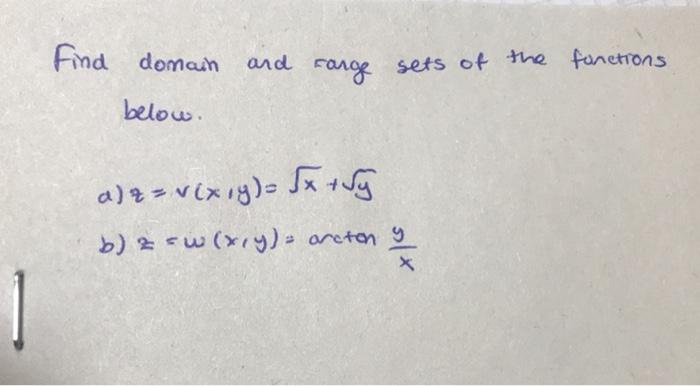 Find domain and range sets of the functions
below.
a) z = v(x,y) = √x + √y
b) z = w(x,y) = arctan y/x